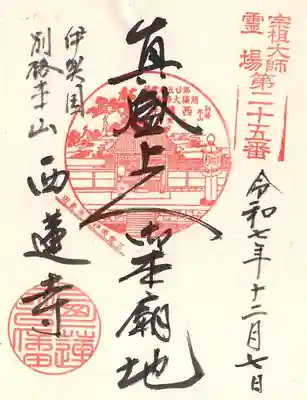 宗祖大師
霊場第二十五番
令和七年十二月七日
真盛上人御廟地
伊賀国
別格本山
西蓮寺